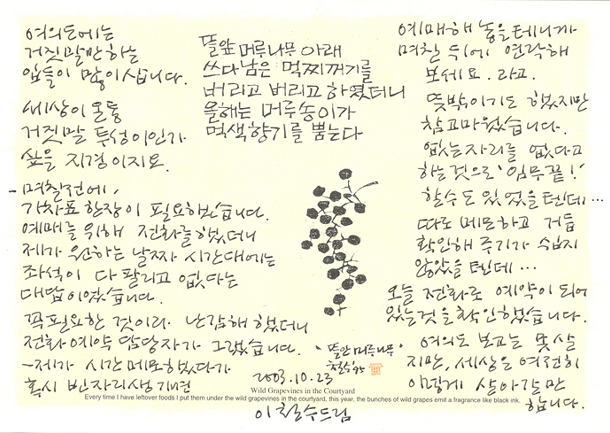 여의도에는
거짓말만하는
입들이 많이 삽니다.
세상이 온통
거짓말 투성이인가
싶을 지경이지요.
-며칠전에,
기차표 한장이 필요했습니다.
예매를 위해 전화를 했더니
제가 원하는 날짜 시간대에는
좌석이 다 팔리고 없다는
대답이었습니다.
꼭필요한 것이라 난감해 했더니
전화예약 담당자가 그랬습니다.
-제가 시간메모했다가
혹시 빈자리생기면
뜰앞 머루나무 아래
쓰다남은 먹찌꺼기를
버리고 버리고 하였더니
올해는 머루송이가
먹색향기를 뿜는다
예매해 놓을테니까
며칠 뒤에 연락해
보세요. 라고.
뜻밖이기도 했지만
참고마웠습니다.
없는자리를 없다고
하는것으로 '임무끝!'
할수도 있었을텐데…
따로 메모하고 거듭
확인해 주기가 쉽지
않았을 텐데…
오늘 전화로 예약이 되어
있는것을 확인했습니다.
여의도 보고는 못살
지만, 세상은 여전히
이렇게 살아갈만
합니다.
"뜰앞 머루나무"
2003.10.23
Wild Grapevines in the Courtyard
Every time I have leftover foods I put them under the wild grapevines in the courtyard, this year, the bunches of wild grapes emit a fragrance like black ink.
이철수드림